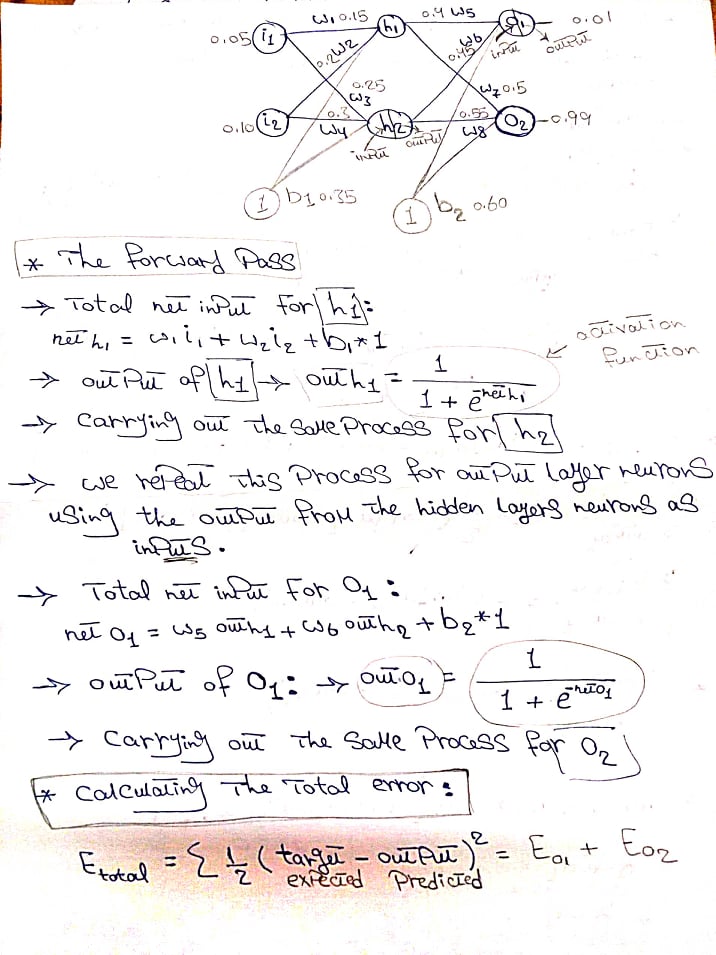 w1 0.15
0.4 w5
0.05 i1
h1
O1 0.01
0.2 w2
0.45 w6
input
output
0.25
w3
w7 0.5
0.10 i2
0.3
w4
h2
0.55
w8
O2 0.99
input
output
1 b1 0.35
1 b2 0.60
* The forward Pass
→ Total net input for h1:
net h1 = w1 i1 + w2 i2 + b1 * 1
activation function
→ output of h1 → out h1 = 1 / (1 + e^-net h1)
→ Carrying out the same Process for h2
→ we repeat this Process for output layer neurons
using the output from the hidden layers neurons as
inputs.
→ Total net input for O1 :
net O1 = w5 out h1 + w6 out h2 + b2 * 1
→ output of O1: → out O1 = 1 / (1 + e^-net O1)
→ Carrying out the same Process for O2
* Calculating The Total error :
E total = Σ 1/2 (target - output)² = E O1 + E O2
expected Predicted